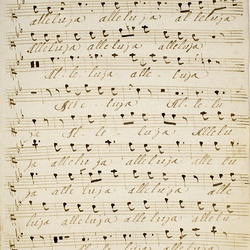 alleluja alleluja alleluja
alleluja alleluja
Alleluja alle luja
Alleluja Allelu
ja Alle luja Allelu
ja alleluja alleluja allelu
ja alle luja alle
luja alleluja alleluja alleluja
alleluja alleluja